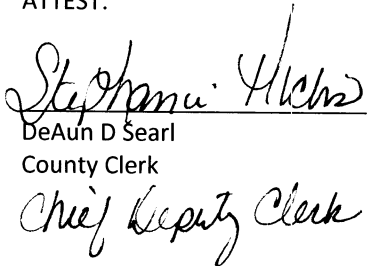 ATTEST:
Stephanie
DeAun D Searl
County Clerk
Chief Deputy Clerk